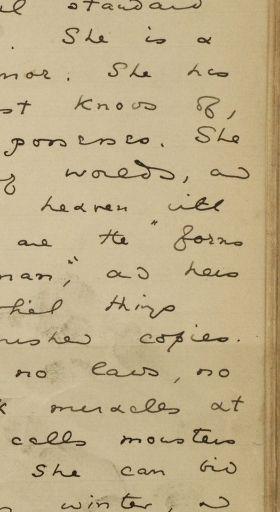 standard
. She is a
. She has
st knows of,
possesses. She
worlds, and
heaven will
are the "forms
man," and hers
things
copies.
no laws, no
miracles at
calls monsters
She can bid
winter,